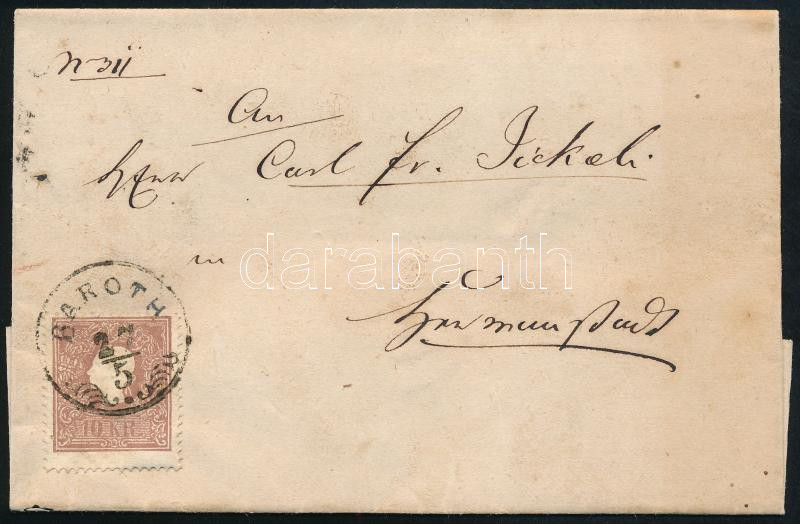 N 311
An
Herrn Carl Fr. Jickeli
in
Hermannstadt
BAROTH
27/5
10 KR
darabanth